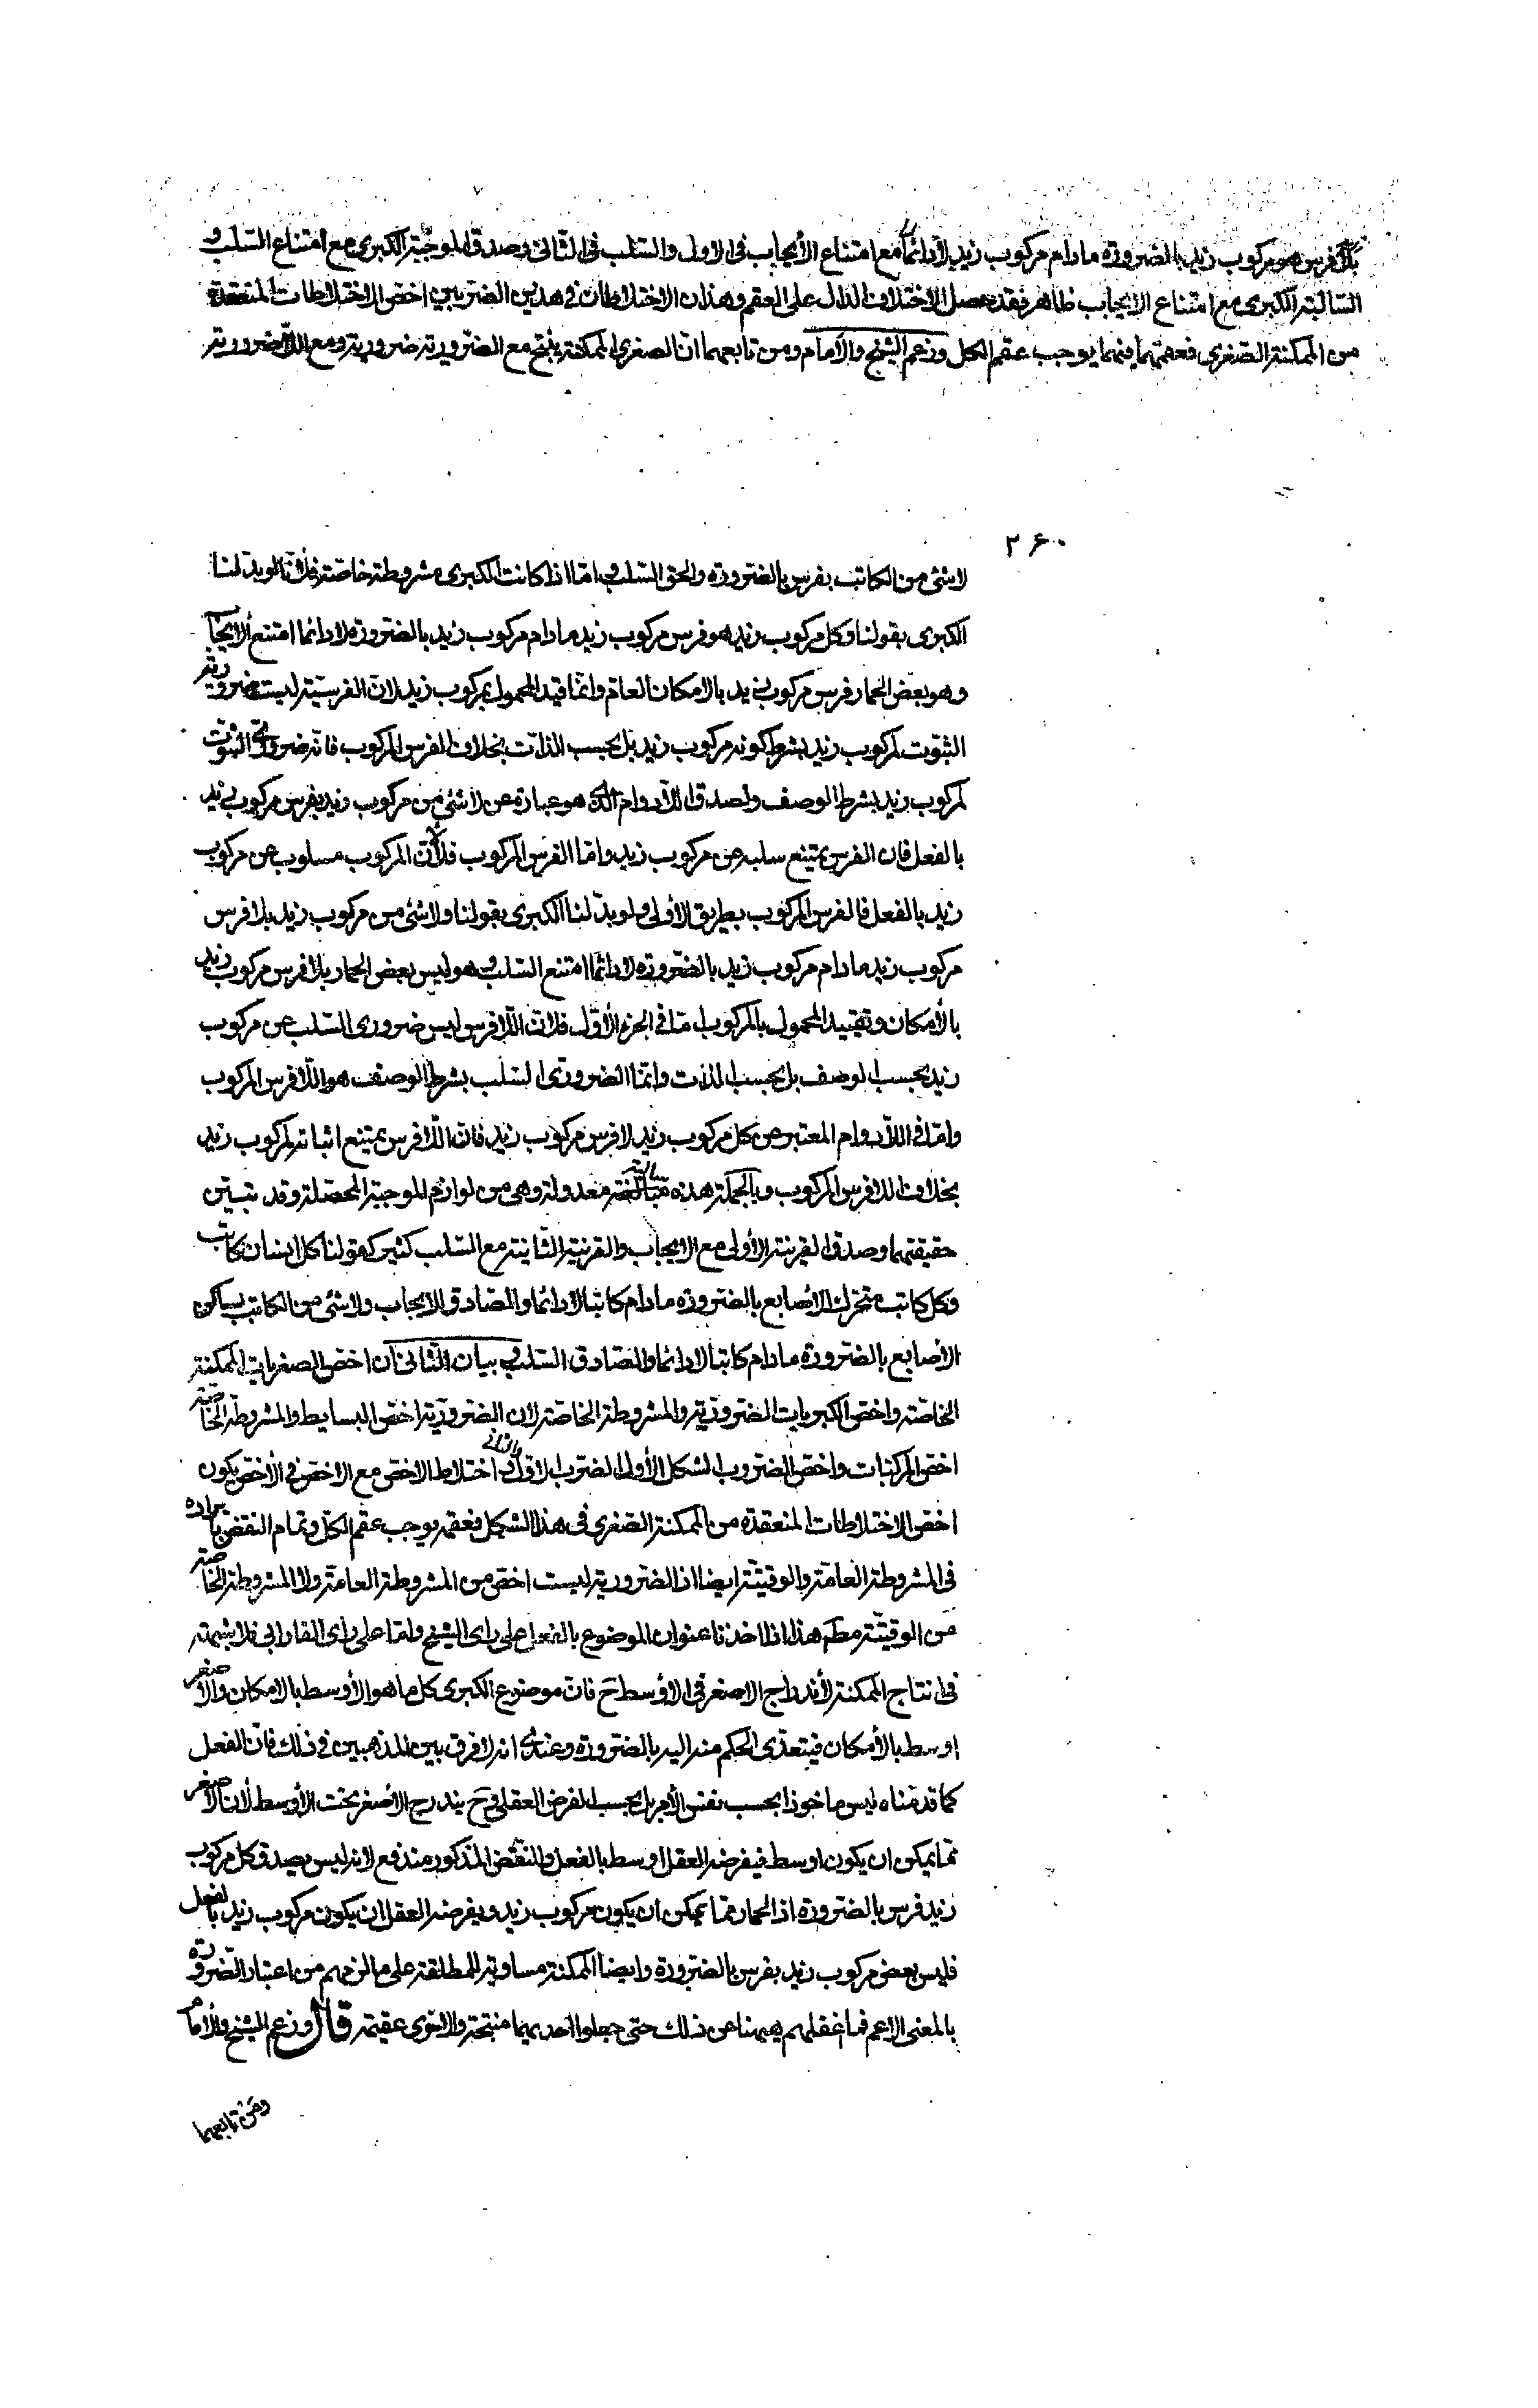 بلا فرس هو مركوب زيد بالضرورة ما دام مركوب زيد لا دائما مع امتناع الأيجاب فى الاول والسّلب فى الثّانى وصدق الموجبة الكبرى مع امتناع السّلب و
السّالبة الكبرى مع امتناع الايجاب ظاهر فقد حصل الاختلاف الدال على العقم وهذان الاختلاطان فى هذين الضربين اخصّ الاختلاطات المنعقدة
من الممكنة الصّغرى فعقمهما فيهما يوجب عقم الكل وزعم الشيخ والأمام ومن تابعهما انّ الصغرى الممكنة ينتج مع الضّروريّة ضروريّة ومع اللّاضروريّة
٣۶٠
لا شئ من الكاتب بفرس بالضّرورة والحق السّلب وامّا اذا كانت الكبرى مشروطة خاصّة فلأنّا لو بدّلنا
الكبرى بقولنا وكل مركوب زيد هو فرس مركوب زيد ما دام مركوب زيد بالضّرورة لا دائما امتنع الأيجاب
وهو بعض الحمار فرس مركوب زيد بالامكان العامّ وانّما قيد المحمول بمركوب زيد لانّ الفرسيّة ليست ضروريّة
الثّبوت لمركوب زيد بشرط كونه مركوب زيد بل بحسب الذّات بخلاف الفرس المركوب فانّه ضرورىّ الثبوت
لمركوب زيد بشرط الوصف ولصدق اللّادوام الّذى هو عبارة عن لا شئ من مركوب زيد بفرس مركوب زيد
بالفعل فان الفرس يمتنع سلبه عن مركوب زيد وامّا الفرس المركوب فلأنّ المركوب مسلوب عن مركوب
زيد بالفعل فالفرس المركوب بطريق الأولى ولو بدّلنا الكبرى بقولنا ولا شئ من مركوب زيد بلا فرس
مركوب زيد ما دام مركوب زيد بالضّرورة لا دائما امتنع السّلب وهو ليس بعض الحمار بلا فرس مركوب زيد
بالأمكان وتقييد المحمول بالمركوب امّا فى الجزء الأوّل فلانّ اللّافرس ليس ضرورى السّلب عن مركوب
زيد بحسب الوصف بل بحسب الذّات وانّما الضرورى السّلب بشرط الوصف هو اللّافرس المركوب
وامّا فى اللّادوام المعتبر عن كل مركوب زيد لا فرس مركوب زيد فانّ اللّافرس يمتنع اثباته لمركوب زيد
بخلاف اللافرس المركوب وبالجملة هذه سالبة معدولة وهى من لوازم الموجبة المحصّلة وقد تبيّن
حقيقتهما وصدق القرينة الأولى مع الايجاب والقرينة الثّانية مع السّلب كثير كقولنا كل انسان كاتب
وكل كاتب متحرّك الأصابع بالضّرورة ما دام كاتبا لا دائما والصّادق الايجاب ولا شئ من الكاتب بساكن
الأصابع بالضّرورة ما دام كاتبا لا دائما والصّادق السّلب وبيان الثّانى انّ اخصّ الصغريات الممكنة
الخاصّة واخصّ الكبريات الضّروريّة والمشروطة الخاصّة لان الضّروريّة اخصّ البسايط والمشروطة الخاصّة
اخصّ المركّبات واخصّ الضّروب الشكل الأول الضّرب الاوّل والثانى واختلاط الاخصّ مع الاخصّ فى الأخصّ يكون
اخصّ الاختلاطات المنعقدة من الممكنة الصّغرى فى هذا الشّكل فعقمه يوجب عقم الكلّ وتمام النقض بايراده
فى المشروطة العامّة والوقتيّة ايضا اذ الضّرورية ليست اخصّ من المشروطة العامّة ولا المشروطة الخاصّة
من الوقتيّة مطم هذا اذا اخذنا عنوان الموضوع بالفعل على راى الشيخ وامّا على راى الفارابى فلا شبهة
فى انتاج الممكنة لأندراج الاصغر فى الأوسط ح فانّ موضوع الكبرى كل ما هو الأوسط بالامكان والأصغر
اوسط بالأمكان فيتعدّى الحكم منه اليه بالضّرورة وعندى انه لا فرق بين المذهبين فى ذلك فانّ الفعل
كما قدمناه ليس ماخوذا بحسب نفس الأمر بل بحسب الفرض العقلى وح يندرج الأصغر تحت الأوسط لأن الأصغر
ممّا يمكن ان يكون اوسط فيفرضه العقل اوسط بالفعل والنّقض المذكور مندفع لانه ليس يصدق كل مركوب
زيد فرس بالضّرورة اذ الحمار ممّا يمكن ان يكون مركوب زيد ويفرضه العقل ان يكون مركوب زيد بالفعل
فليس بعض مركوب زيد بفرس بالضّرورة وايضا الممكنة مساوية للمطلقة على ما لزمهم من اعتبار الضّرورة
بالمعنى الاعم فما اغفلهم ههنا عن ذلك حتى جعلوا احديهما منتجة والاخرى عقيمة قال وزعم الشيخ والأمام
ومن تابعهما